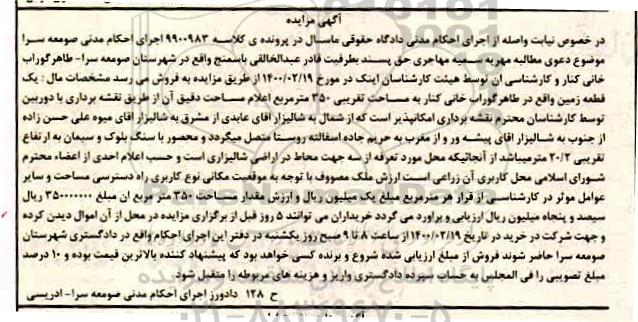 آگهی مزایده
در خصوص نیابت واصله از اجرای احکام مدنی دادگاه حقوقی ماسال در پرونده ی کلاسه ۹۹۰۰۹۸۳ اجرای احکام مدنی صومعه سرا
موضوع دعوی مطالبه مهریه سمیه مهاجری حق پسند بطرفیت قادر عبدالخالقی باسمنج واقع در شهرستان صومعه سرا- طاهرگوراب
خانی کنار و کارشناسی ان توسط هیئت کارشناسان اینک در مورخ ۱۴۰۰/۰۲/۱۹ از طریق مزایده به فروش می رسد مشخصات مال : یک
قطعه زمین واقع در طاهرگوراب خانی کنار به مساحت تقریبی ۳۵۰ مترمربع اعلام مساحت دقیق آن از طریق نقشه برداری با دوربین
توسط کارشناسان محترم نقشه برداری امکانپذیر است که از شمال به شالیزار اقای عابدی از مشرق به شالیزار اقای میوه علی حسن زاده
از جنوب به شالیزار اقای پیشه ور و از مغرب به حریم جاده اسفالته روستا متصل میگردد و محصور با سنگ بلوک و سیمان به ارتفاع
تقریبی ۲۰/۲ مترمیباشد از آنجائیکه محل مورد تعرفه از سه جهت محاط در اراضی شالیزاری است و حسب اعلام احدی از اعضاء محترم
شورای اسلامی محل کاربری آن زراعی است ارزش ملک مصووف با توجه به موقعیت مکانی نوع کاربری راه دسترسی مساحت و سایر
عوامل موثر در کارشناسی از قرار هر مترمربع مبلغ یک میلیون ریال و ارزش مقدار مساحت ۳۵۰ متر مربع ان مبلغ ۳۵۰۰۰۰۰۰۰ ریال
سیصد و پنجاه میلیون ریال ارزیابی و براورد می گردد خریداران می توانند ۵ روز قبل از برگزاری مزایده در محل از آن اموال دیدن کرده
و جهت شرکت در خرید در تاریخ ۱۴۰۰/۰۲/۱۹ از ساعت ۸ تا ۹ صبح روز یکشنبه در دفتر این اجرای احکام واقع در دادگستری شهرستان
صومعه سرا حاضر شوند فروش از مبلغ ارزیابی شده شروع و برنده کسی خواهد بود که پیشنهاد کننده بالاترین قیمت بوده و ۱۰ درصد
مبلغ تصویبی را فی المجلس به حساب سپرده دادگستری واریز و هزینه های مربوطه را متقبل شود.
ح ۱۲۸ دادورز اجرای احکام مدنی صومعه سرا- ادریسی